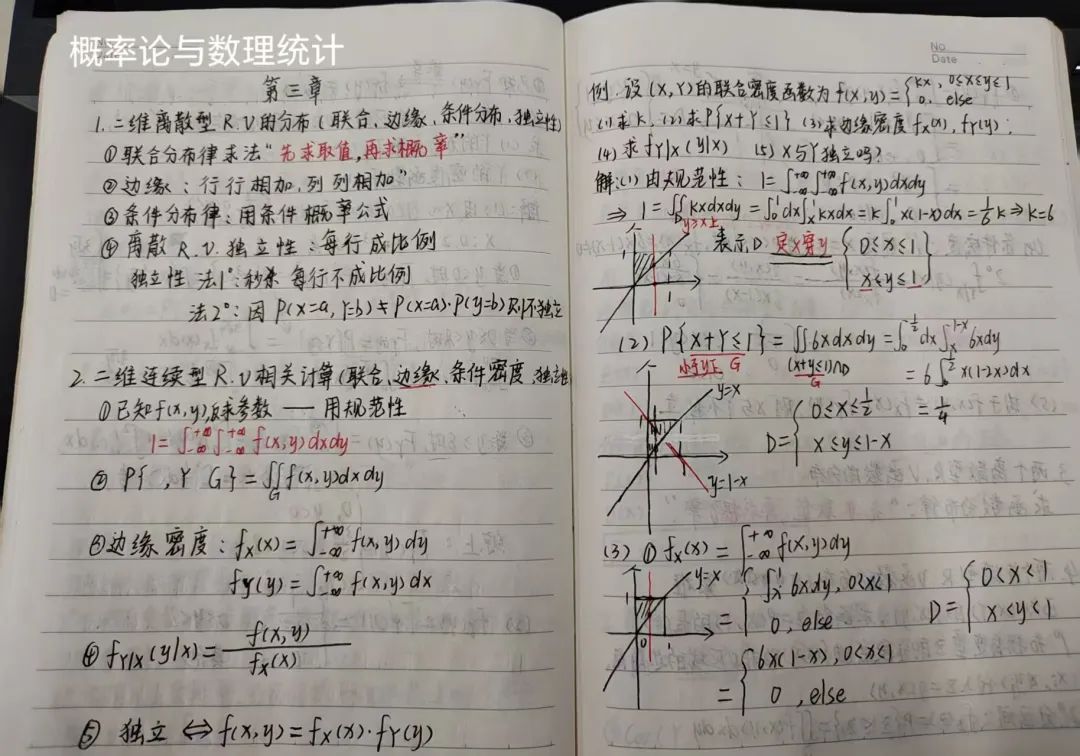 概率论与数理统计
第三章
1.二维离散型R.V的分布(联合、边缘、条件分布,独立性)
①联合分布律求法"先求取值,再求概率"
②边缘:行行相加,列列相加"
③条件分布律:用条件概率公式
④离散R.V.独立性:每行成比例
独立性 法1°:秒杀 每行不成比例
法2°:因P(x=a,Y=b)≠P(x=a)·P(y=b)则不独立
2.二维连续型R.V相关计算(联合、边缘、条件密度、独立性
①已知f(x,y),求参数——用规范性
1=∫_{-∞}^{+∞}∫_{-∞}^{+∞}f(x,y)dxdy
② P{ , Y G}=∬_G f(x,y)dxdy
③边缘密度:f_X(x)=∫_{-∞}^{+∞}f(x,y)dy
f_Y(y)=∫_{-∞}^{+∞}f(x,y)dx
④ f_{Y|X}(y|x)=f(x,y)/f_X(x)
⑤ 独立⇔f(x,y)=f_X(x)·f_Y(y)
No.
Date
例.设(X,Y)的联合密度函数为f(x,y)={kx, 0≤x≤y≤1
0, else
(1)求k, (2)求P{X+Y≤1} (3)求边缘密度f_X(x),f_Y(y);
(4)求f_{Y|X}(y|x) (5)X与Y独立吗?
解:(1)由规范性:1=∫_{-∞}^{+∞}∫_{-∞}^{+∞}f(x,y)dxdy
⇒1=∬_D kxdxdy=∫_0^1dx∫_x^1kxdx=k∫_0^1x(1-x)dx=1/6k⇒k=6
y≥x上
1
1
表示D 定x穿y {0≤x≤1
x≤y≤1}
(2)P{X+Y≤1}=∬6xdxdy=∫_0^{1/2}dx∫_x^{1-x}6xdy
小于y下 G (x+y≤1)∩D
G
=6∫_0^{1/2}x(1-2x)dx
=1/4
y=x
1
y=1-x
D={0≤x≤1/2
x≤y≤1-x
(3)①f_X(x)=∫_{-∞}^{+∞}f(x,y)dy
y=x
0 1
={∫_x^1 6xdy, 0<x<1
0, else
D={0<x<1
x<y<1
={6x(1-x), 0<x<1
0, else